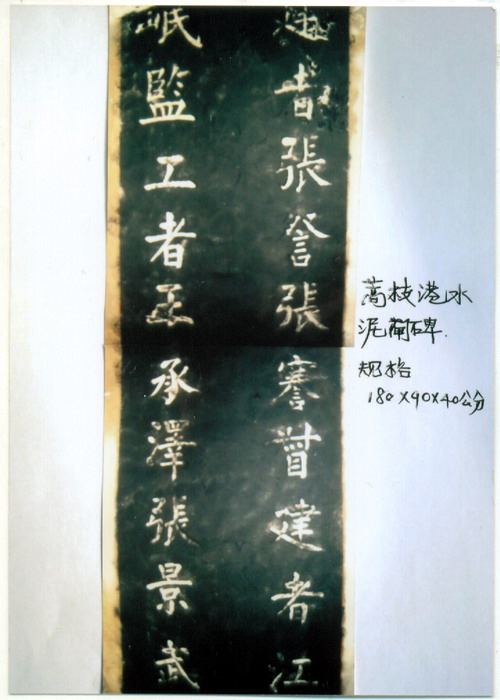 者張詧張謇督建者江
岷監工者丞承澤張景武
蒿枝港水
泥閘碑.
规格
180×90×40公分